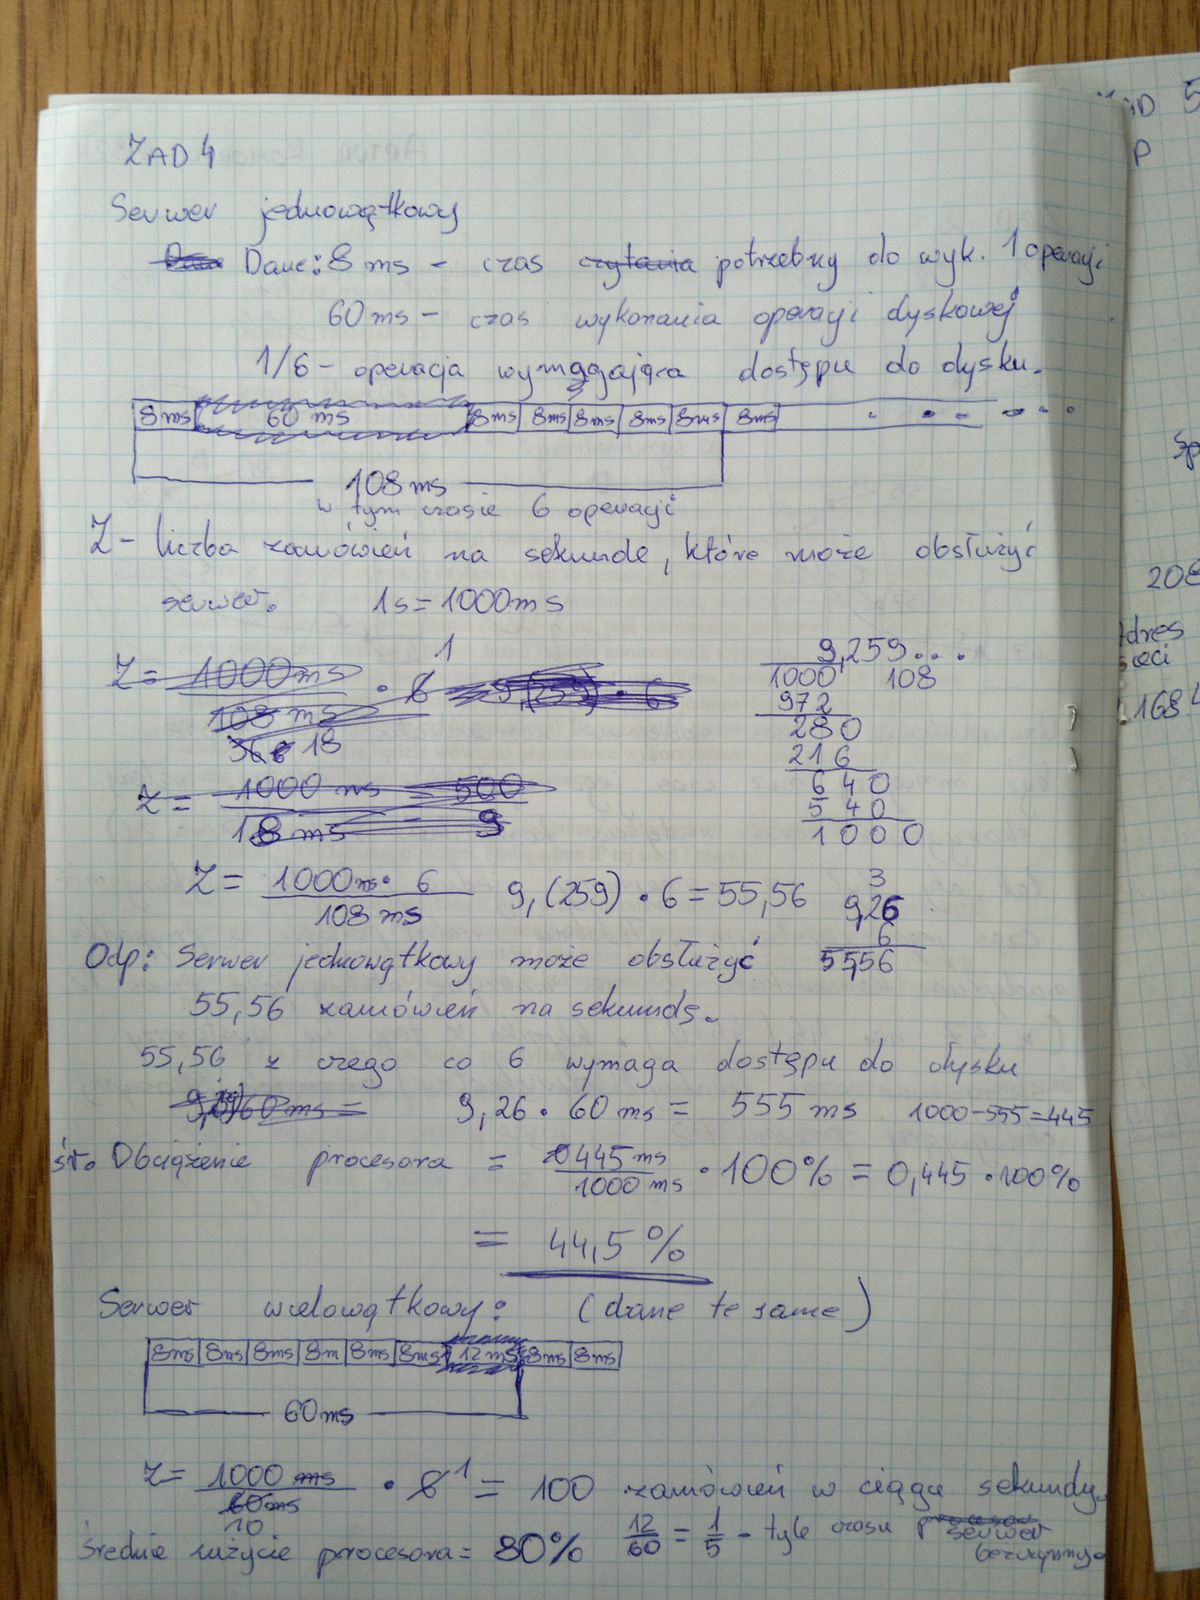 ZAD 4
Serwer jednowątkowy
Dane: 8 ms - czas czytania potrzebny do wyk. 1 operacji
60 ms - czas wykonania operacji dyskowej
1/6 - operacja wymagająca dostępu do dysku.
8ms 60 ms 8ms 8ms 8ms 8ms 8ms 8ms
108 ms
w tym czasie 6 operacji
Z - liczba zamówień na sekunde, które może obsłużyć
serwer. 1s = 1000ms
Z = 1000ms / 108 ms · 6 1 = 9,(259) · 6
36 18
9,259...
1000 108
972
280
216
640
540
1000
Z = 1000 ms / 18 ms 500 / 9
Z = 1000ms · 6 / 108 ms 9,(259) · 6 = 55,56
3
9,26
6
55,56
Odp: Serwer jednowątkowy może obsłużyć
55,56 zamówień na sekundę.
55,56 z czego co 6 wymaga dostępu do dysku
60 ms = 9,26 · 60 ms = 555 ms 1000-555=445
śr. Obciążenie procesora = 445 ms / 1000 ms · 100% = 0,445 · 100%
= 44,5 %
Serwer wielowątkowy: (dane te same)
8ms 8ms 8ms 8m 8ms 8ms 12ms 8ms 8ms
60ms
Z = 1000 ms / 60ms · 6 1 = 100 zamówień w ciągu sekundy.
10
średnie zużycie procesora = 80% 12/60 = 1/5 - tyle czasu procesor serwer
bezczynny
ZAD 5
P
Sp
208
Adres
sieci
168.4